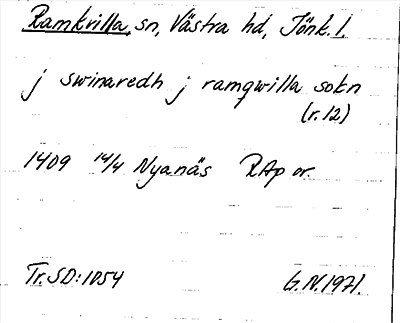 Ramkvilla, sn, Västra hd, Jönk. l.
j swinaredh j ramqwilla sokn
(r. 12)
1409 14/4 Nyanäs RAp or.
Tr. SD: 1054
G.N. 1971.